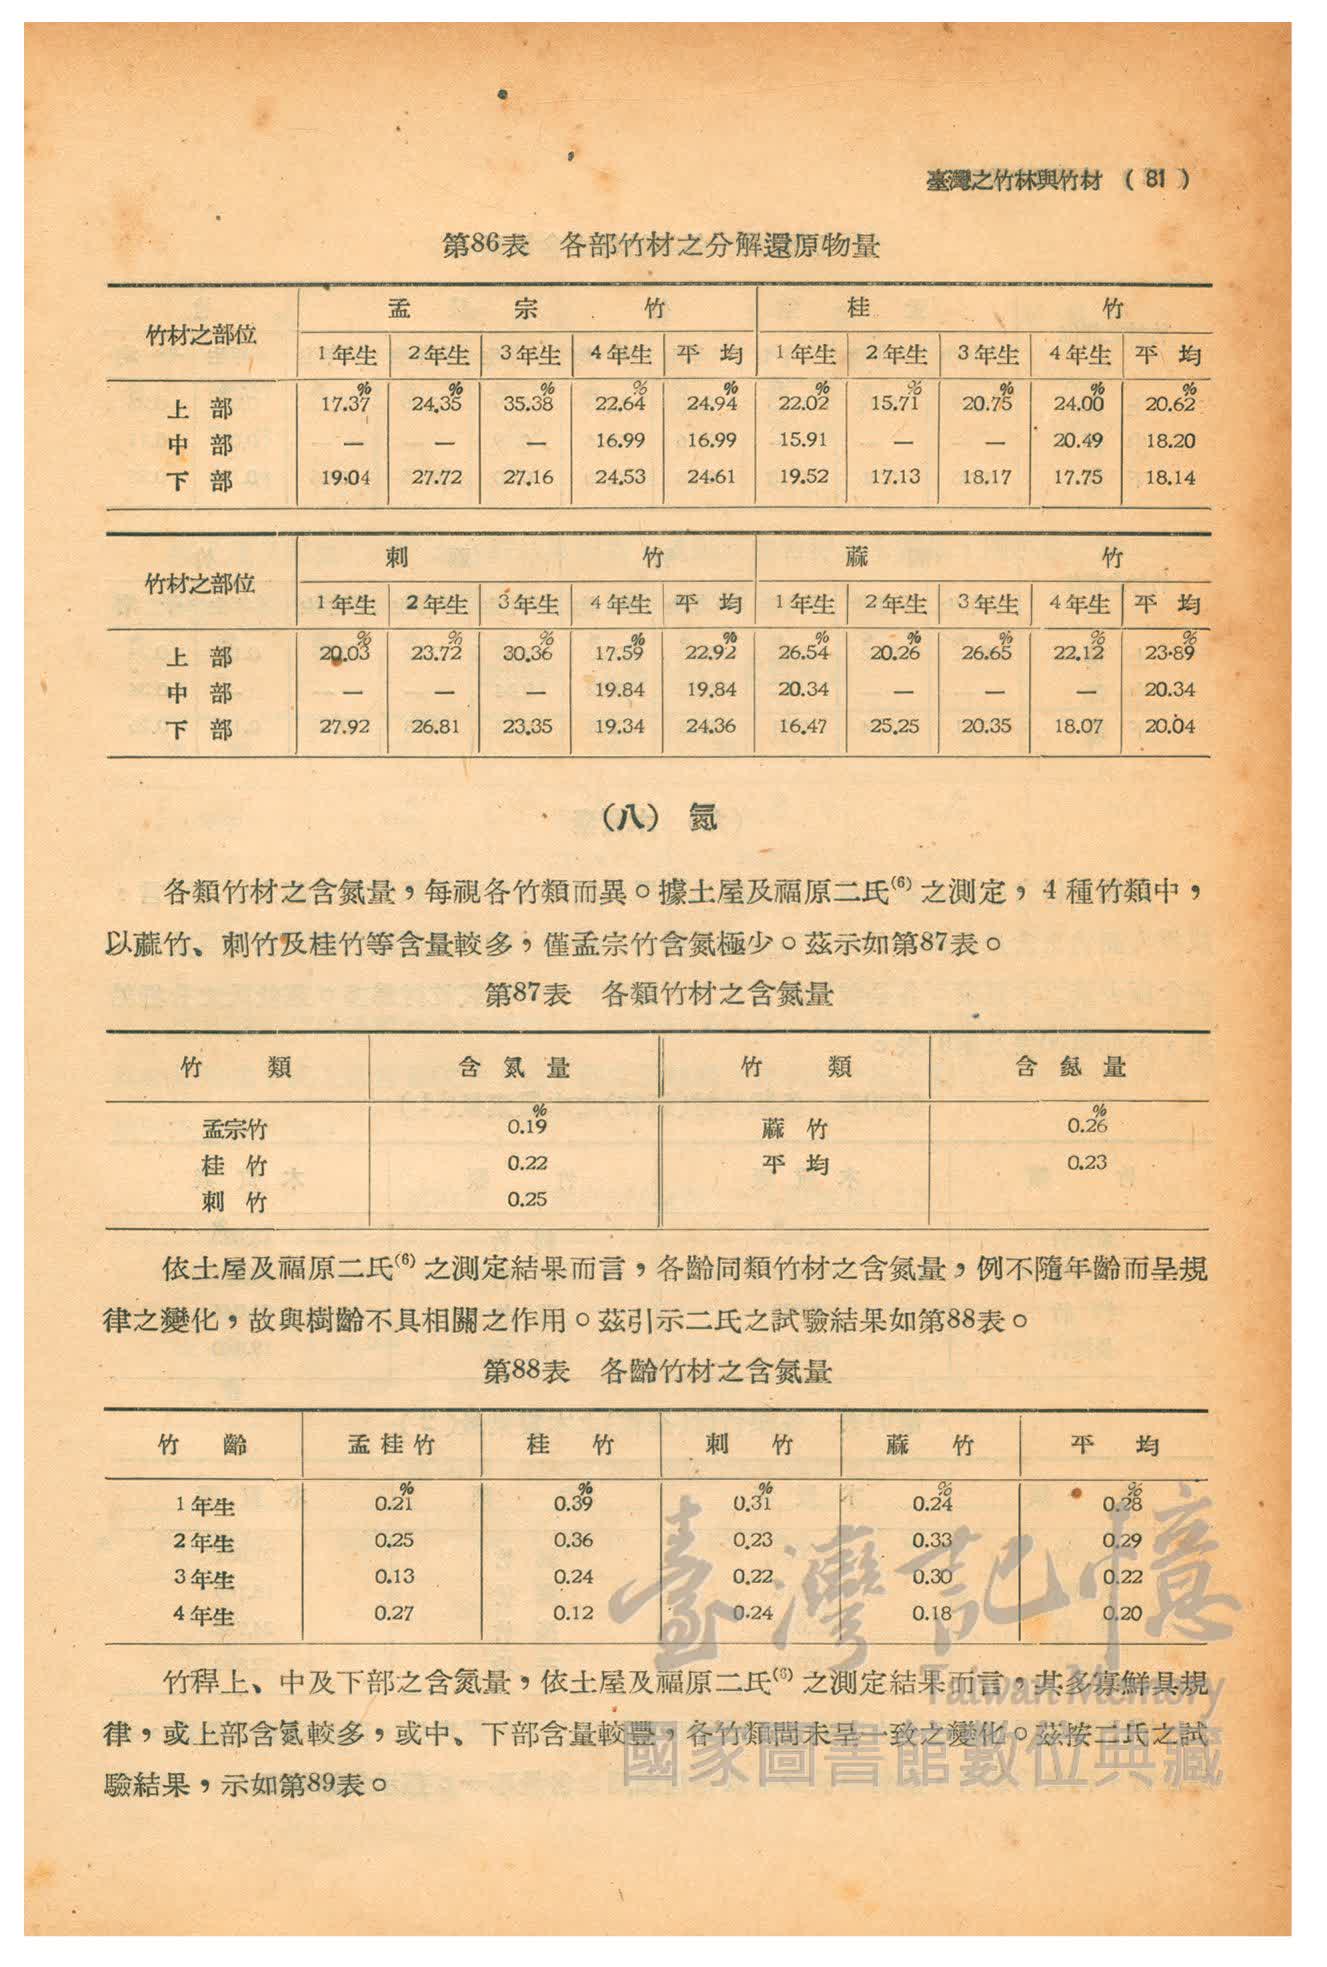 臺灣之竹林與竹材 (81)
第86表 各部竹材之分解還原物量
竹材之部位 孟宗竹 桂竹
1年生 2年生 3年生 4年生 平均 1年生 2年生 3年生 4年生 平均
% % % % % % % % % %
上部 17.37 24.35 35.38 22.64 24.94 22.02 15.71 20.75 24.00 20.62
中部 — — — 16.99 16.99 15.91 — — 20.49 18.20
下部 19.04 27.72 27.16 24.53 24.61 19.52 17.13 18.17 17.75 18.14
竹材之部位 刺竹 蔴竹
1年生 2年生 3年生 4年生 平均 1年生 2年生 3年生 4年生 平均
% % % % % % % % % %
上部 20.03 23.72 30.36 17.59 22.92 26.54 20.26 26.65 22.12 23.89
中部 — — — 19.84 19.84 20.34 — — — 20.34
下部 27.92 26.81 23.35 19.34 24.36 16.47 25.25 20.35 18.07 20.04
(八) 氮
各類竹材之含氮量，每視各竹類而異。據土屋及福原二氏(6)之測定，4種竹類中，
以蔴竹、刺竹及桂竹等含量較多，僅孟宗竹含氮極少。茲示如第87表。
第87表 各類竹材之含氮量
竹類 含氮量 竹類 含氮量
% %
孟宗竹 0.19 蔴竹 0.26
桂竹 0.22 平均 0.23
刺竹 0.25
依土屋及福原二氏(6)之測定結果而言，各齡同類竹材之含氮量，例不隨年齡而呈規
律之變化，故與樹齡不具相關之作用。茲引示二氏之試驗結果如第88表。
第88表 各齡竹材之含氮量
竹齡 孟桂竹 桂竹 刺竹 蔴竹 平均
% % % % %
1年生 0.21 0.39 0.31 0.24 0.28
2年生 0.25 0.36 0.23 0.33 0.29
3年生 0.13 0.24 0.22 0.30 0.22
4年生 0.27 0.12 0.24 0.18 0.20
竹稈上、中及下部之含氮量，依土屋及福原二氏(6)之測定結果而言，其多寡鮮具規
律，或上部含氮較多，或中、下部含量較豐，各竹類間未呈一致之變化。茲按二氏之試
驗結果，示如第89表。
臺灣記憶
Taiwan Memory
國家圖書館數位典藏